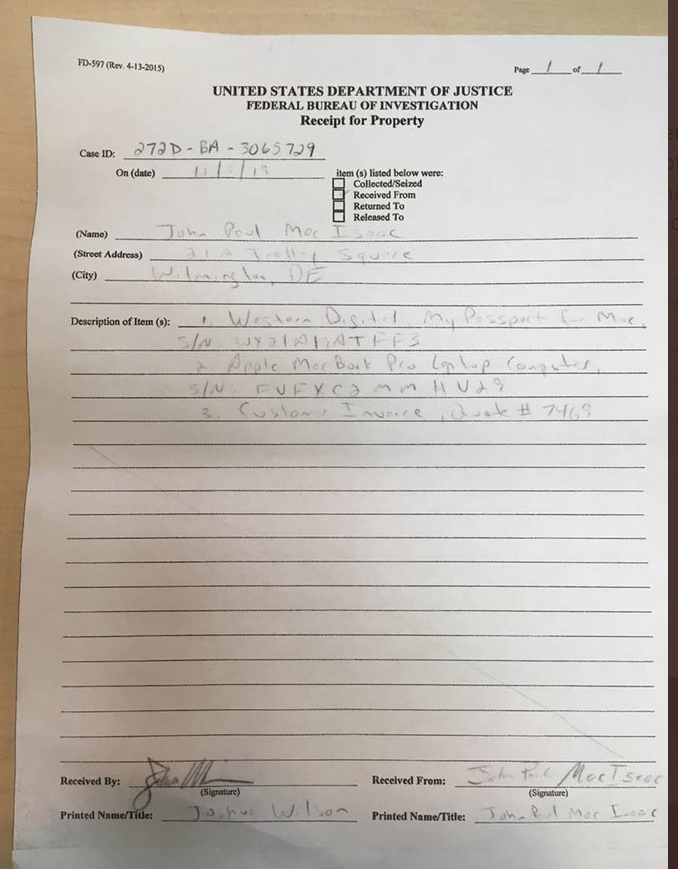 FD-597 (Rev. 4-13-2015)
Page 1 of 1
UNITED STATES DEPARTMENT OF JUSTICE
FEDERAL BUREAU OF INVESTIGATION
Receipt for Property
Case ID: 272D-BA-3065729
On (date)
item (s) listed below were:
Collected/Seized
Received From
Returned To
Released To
(Name) John Paul Mac Isaac
(Street Address) 21A Trolley Square
(City) Wilmington, DE
Description of Item (s): 1. Western Digital, My Passport for Mac,
S/N
2. Apple MacBook Pro Laptop Computer,
S/N: FVFXC2MMHV29
3. Customer Invoice, Quote # 7469
Received By:
Received From: John Paul Mac Isaac
(Signature)
(Signature)
Printed Name/Title: Joshua Wilson
Printed Name/Title: John Paul Mac Isaac